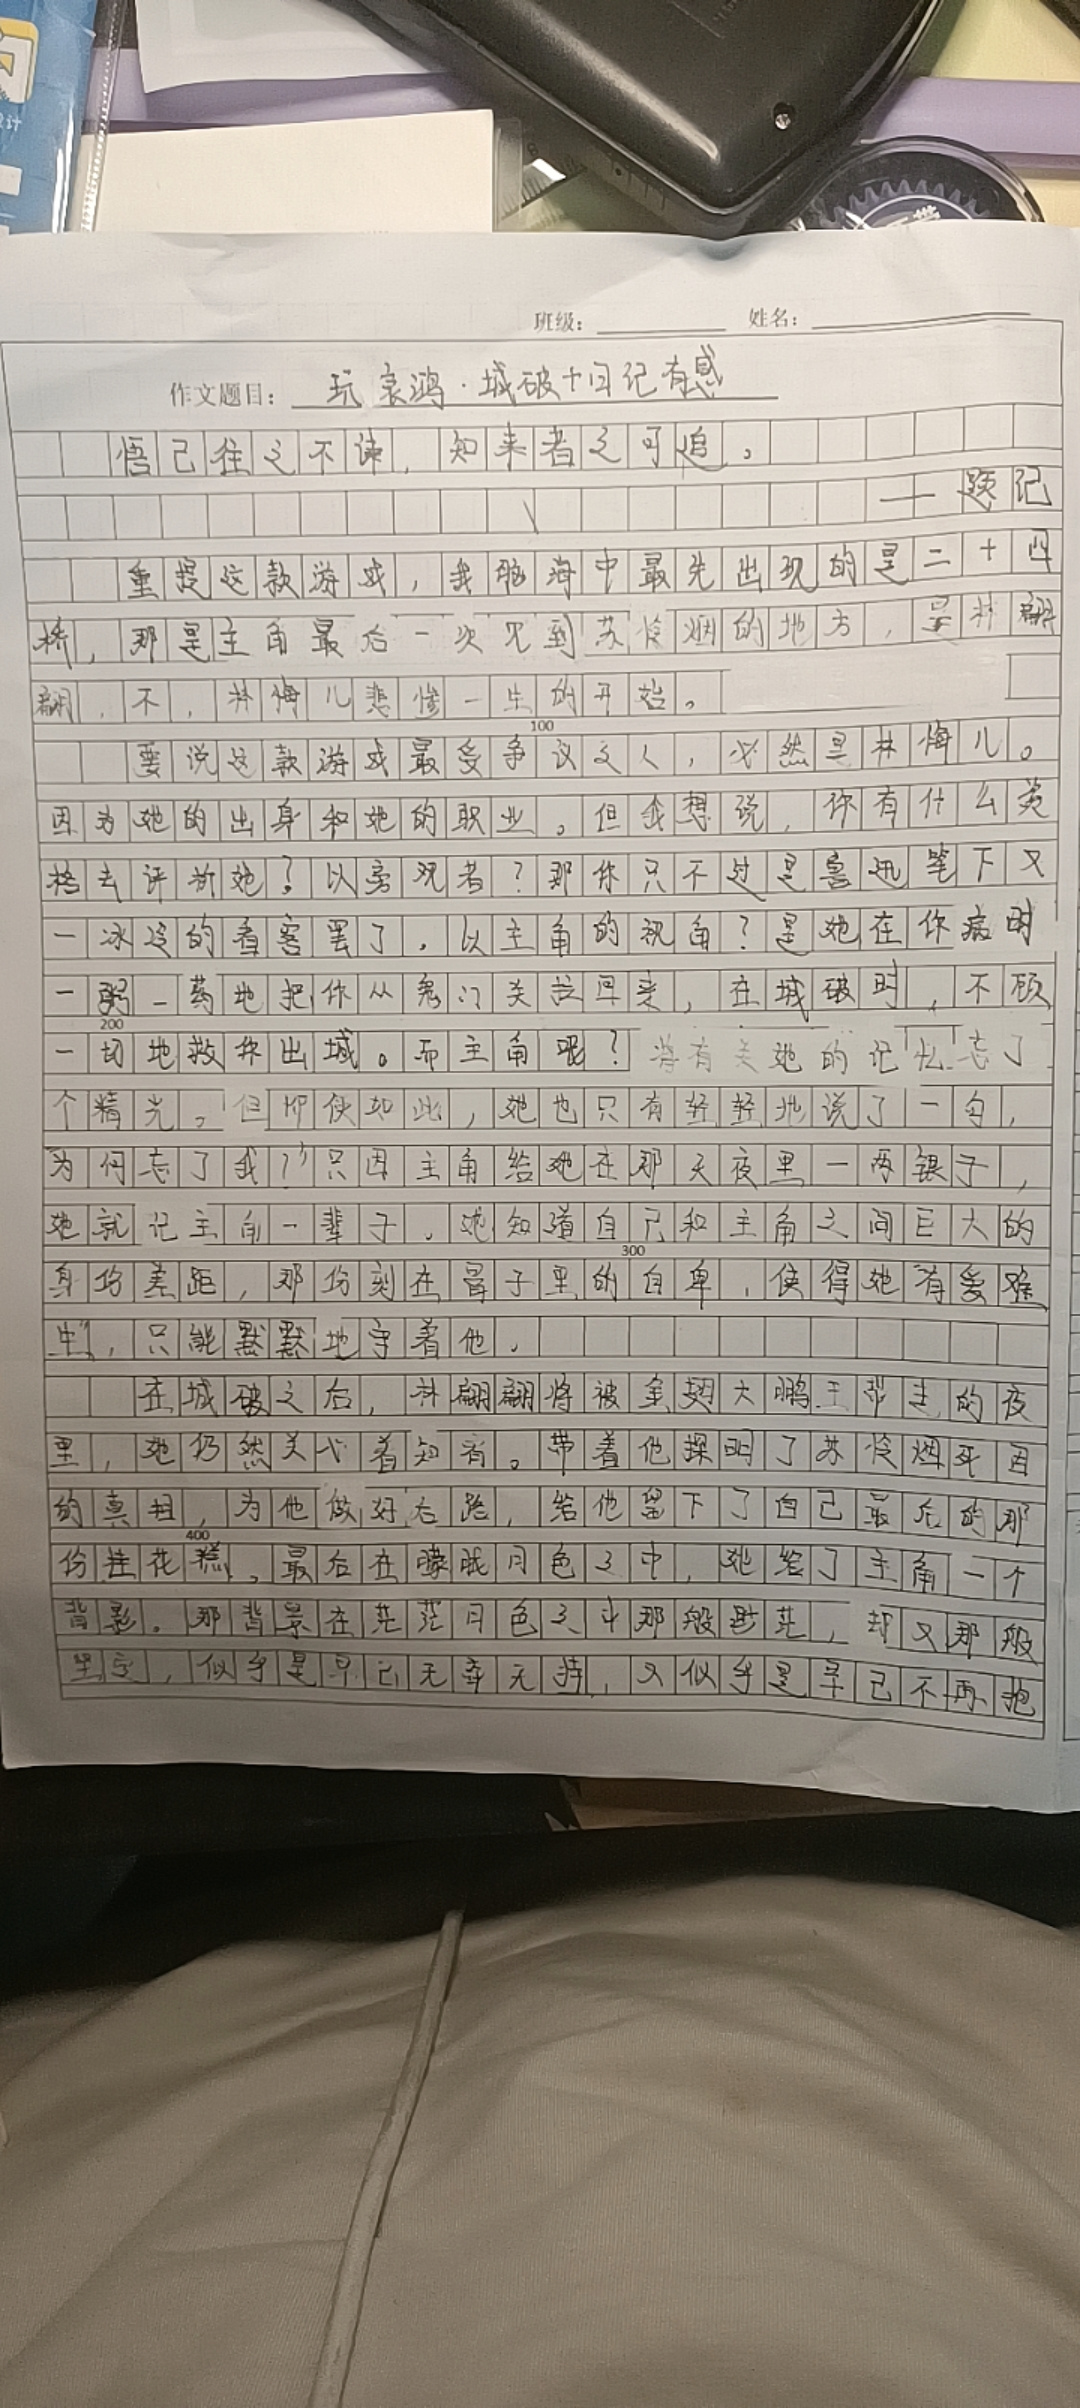 设计
班级：
姓名：
作文题目：玩哀鸿·城破十日记有感
悟已往之不谏，知来者之可追。
——题记
重提这款游戏，我脑海中最先出现的是二十四
桥，那是主角最后一次见到苏怜烟的地方，是林翩
翩，不，林悔儿悲惨一生的开始。
100
要说这款游戏最受争议之人，必然是林悔儿。
因为她的出身和她的职业。但我想说，你有什么资
格去评断她？以旁观者？那你只不过是鲁迅笔下又
一冰冷的看客罢了。以主角的视角？是她在你病时
一粥一药地把你从鬼门关拉回来，在城破时，不顾
200
一切地救你出城。而主角呢？将有关她的记忆忘了
个精光。但即使如此，她也只有轻轻地说了一句，
为何忘了我？”只因主角给她在那天夜里一两银子，
她就记主角一辈子。她知道自己和主角之间巨大的
300
身份差距，那份刻在骨子里的自卑，使得她有爱难
生”，只能默默地守着他。
在城破之后，林翩翩将被金翅大鹏王带走的夜
里，她仍然关心着知宥。带着他探明了苏怜烟死因
的真相，为他做好后路，给他留下了自己最后的那
400
份桂花糕。最后在朦胧月色之中，她给了主角一个
背影。那背景在茫茫月色之中那般渺茫，却又那般
坚定，似乎是早已无牵无挂，又似乎是早已不再抱